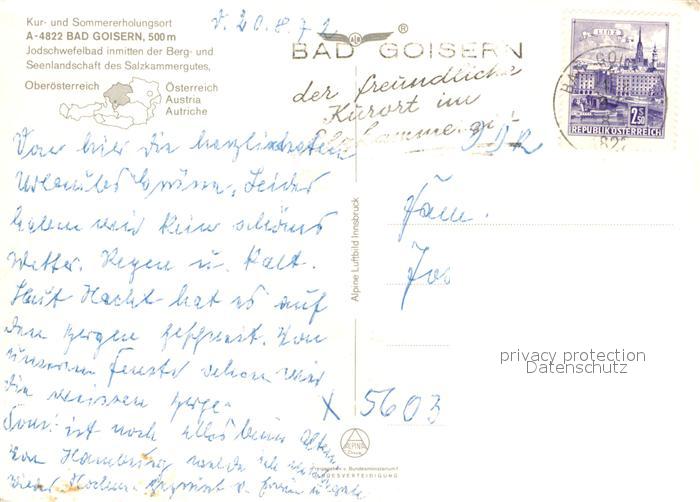 d. 20.8.72
Kur- und Sommererholungsort
A-4822 BAD GOISERN, 500 m
Jodschwefelbad inmitten der Berg- und
Seenlandschaft des Salzkammergutes,
Oberösterreich
Österreich
Austria
Autriche
BAD GOISERN
der freundliche
Kurort im
Salzkammergut
LINZ
2.50
REPUBLIK ÖSTERREICH
Von hier die herzlichsten
Urlaubsgrüsse. Leider
haben wir kein schönes
Wetter. Regen u. Kalt.
Heut Nacht hat es auf
den Bergen geschneit. Von
unserem Fenster sehen wir
die weissen Berge.
Sonst ist noch alles beim Alten
Von Hamburg
DDR
Fam.
Jos
X 5603
Alpine Luftbild Innsbruck
ALPINE
Freigegeben v. Bundesministerium f.
LANDESVERTEIDIGUNG
privacy protection
Datenschutz